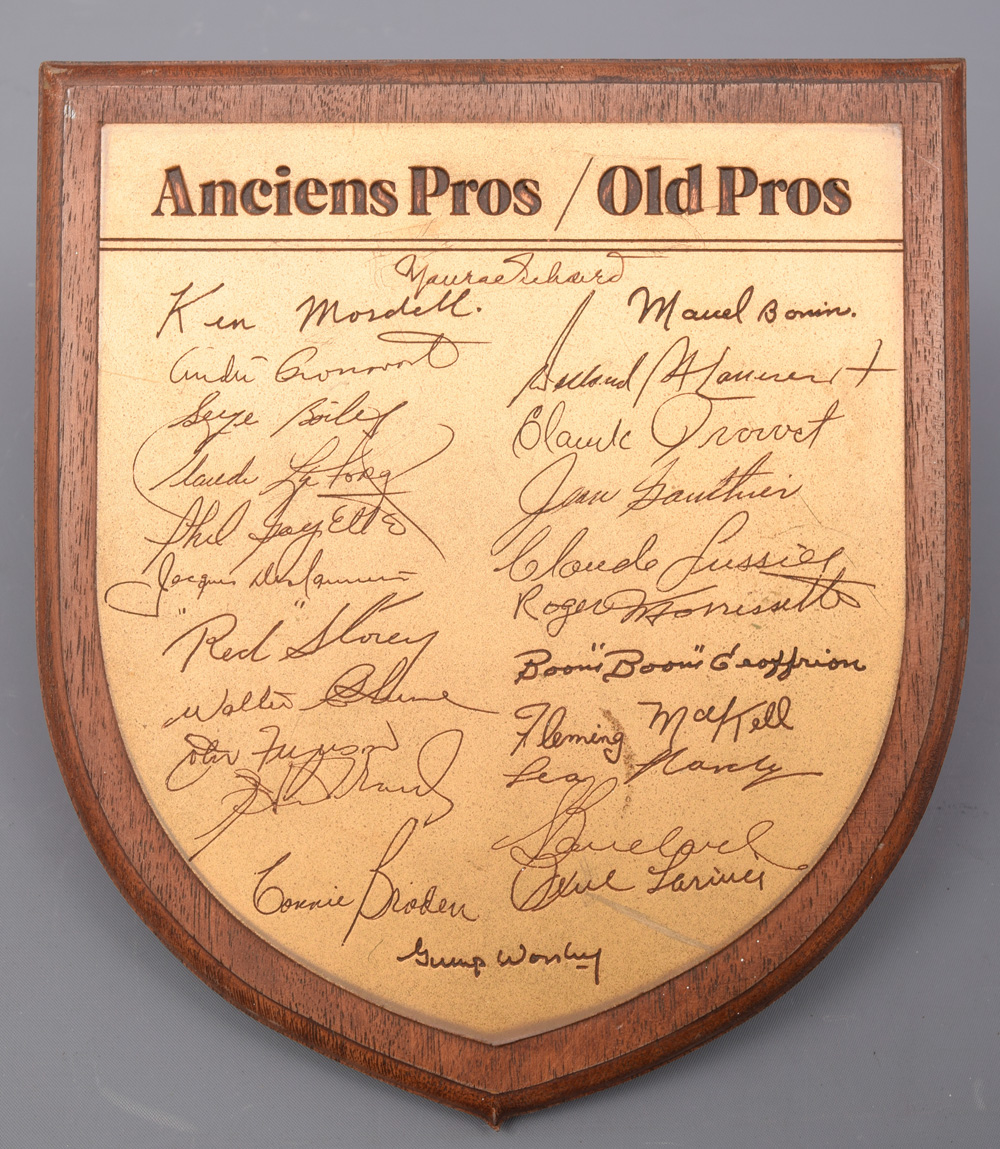 Anciens Pros / Old Pros
Maurice Richard
Ken Mosdell.
André Pronovost
Serge Boiley
Claude Laforge
Phil Goyette
Jacques Deslauriers
"Red" Storey
Walter
John Ferguson
Connie Broden
Marcel Bonin.
Claude Provost
Jean Gauthier
Claude Lussier
Roger Morrissette
"Boom" Boom" Geoffrion
Fleming Mackell
Larivée
Gump Worsley